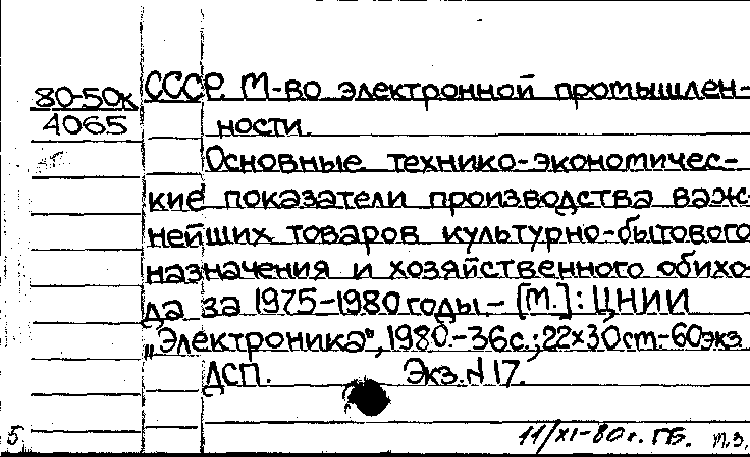 80-50к СССР. М-во электронной промышлен-
4065 ности.
Основные технико-экономичес-
кие показатели производства важ-
нейших товаров культурно-бытового
назначения и хозяйственного обихо-
да за 1975-1980 годы.- [М.]: ЦНИИ
„Электроника", 1980.-36с.; 22х30cm.-60экз.
ДСП. Экз. N 17.
5 11/XI-80г. ГБ. т.з.